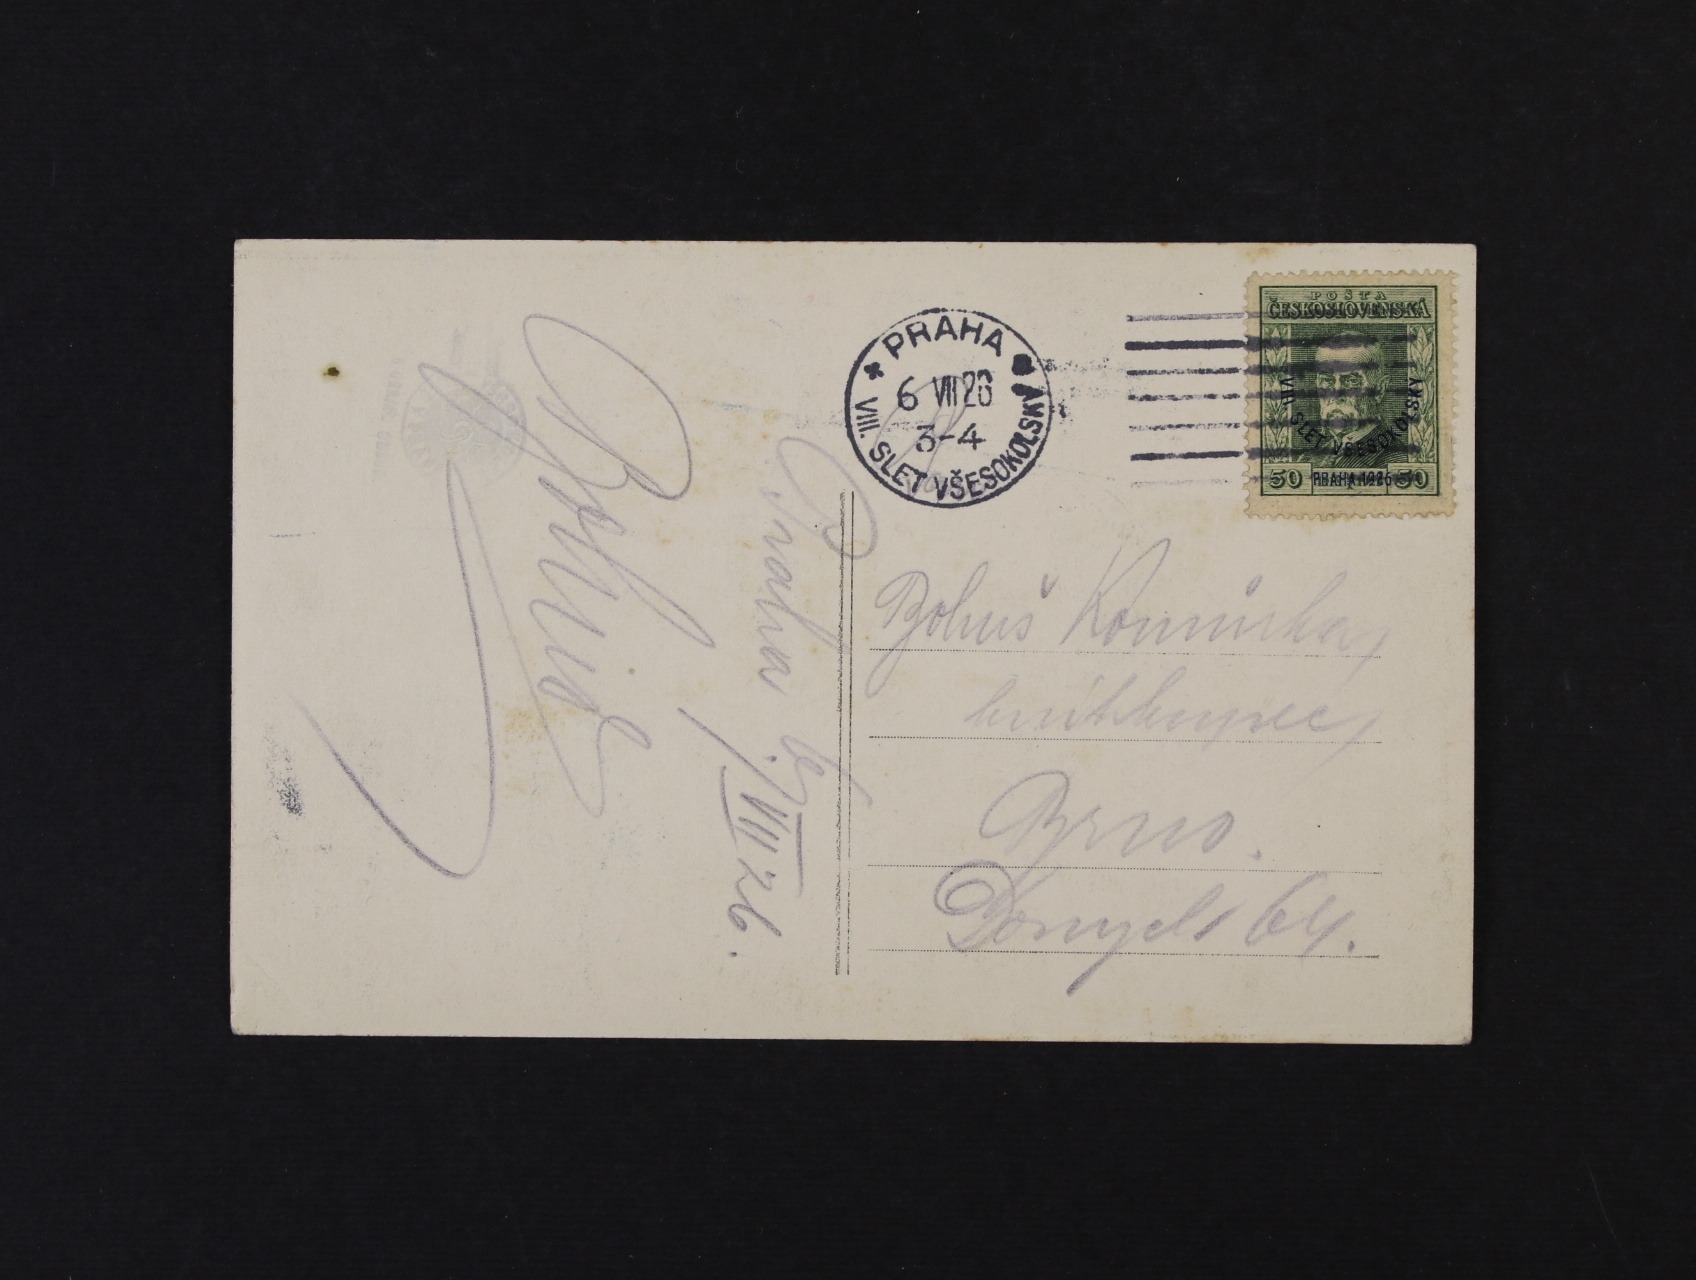 PRAHA
6 VII 26
3-4
VIII. SLET VŠESOKOLSKÝ
POŠTA
ČESKOSLOVENSKÁ
VIII. SLET VŠESOKOLSKÝ
50 PRAHA 1926 50
Praha 6/VII 26.
Bohuš
Brno.
64.